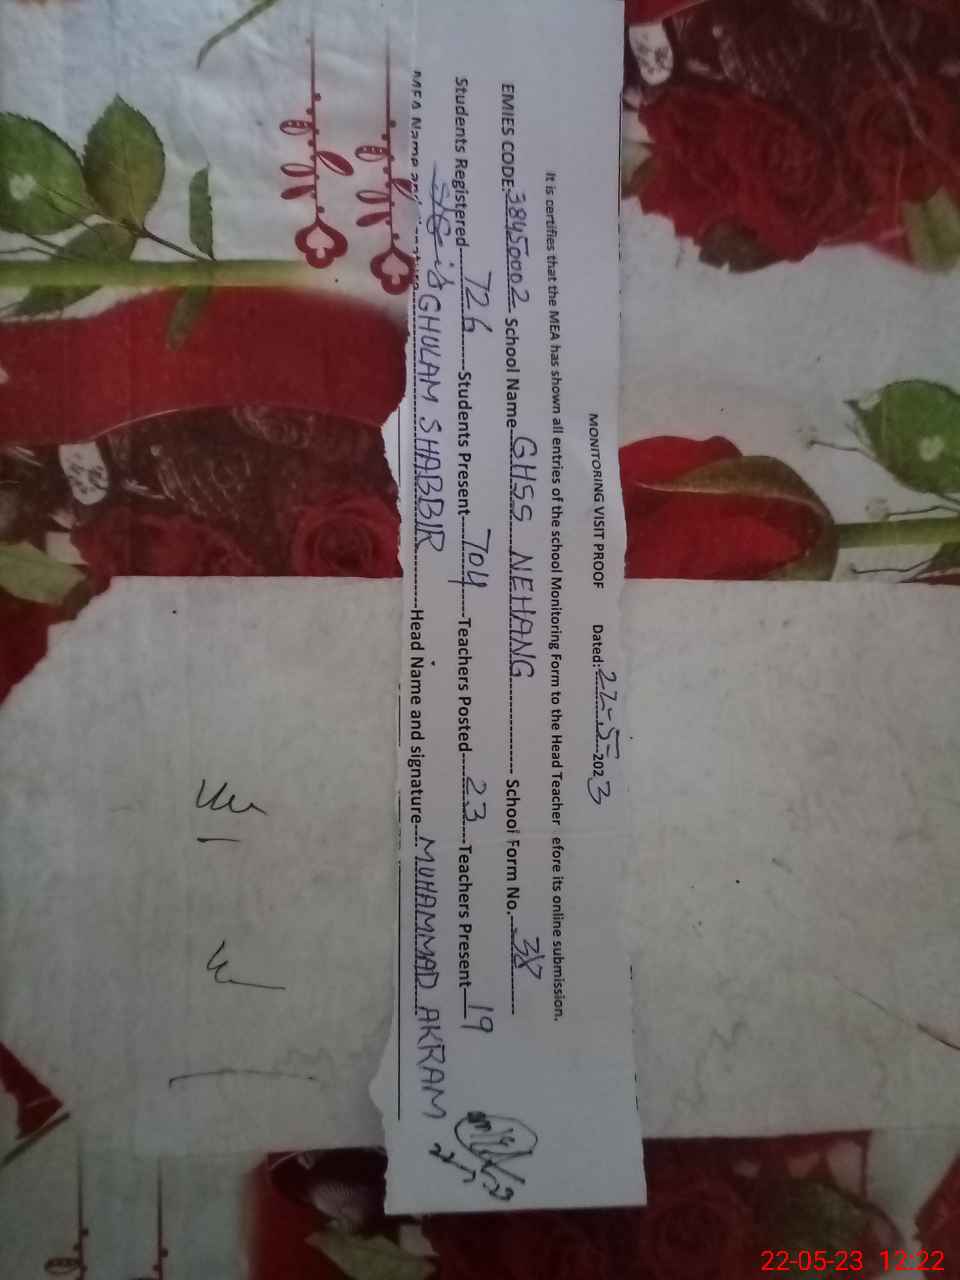 MONITORING VISIT PROOF Dated:22-5-2023
It is certifies that the MEA has shown all entries of the school Monitoring Form to the Head Teacher efore its online submission.
EMIES CODE:38450002 School Name GHSS NEHANG School Form No. 38
Students Registered 726 Students Present 704 Teachers Posted 23 Teachers Present 19
MEA Name and GHULAM SHABBIR Head Name and signature MUHAMMAD AKRAM
22-05-23 12:22